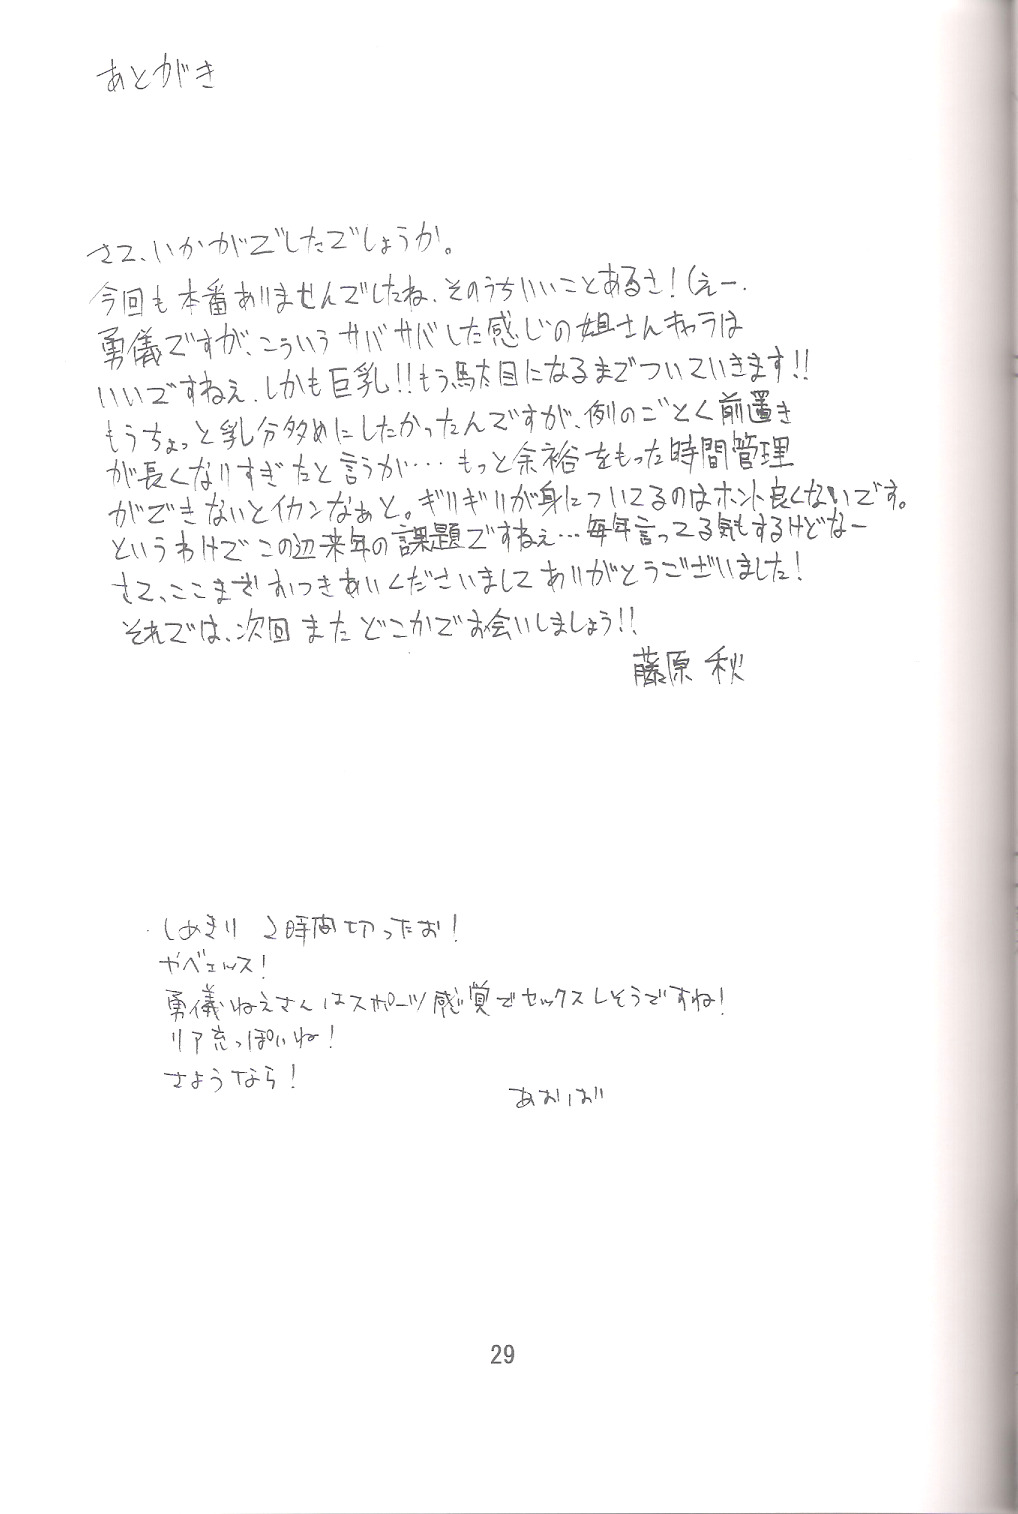 あとがき
さて、いかがでしたでしょうか。
今回も本番ありませんでしたね、そのうちいいことあるさ！(えー．
勇儀ですが、こういうサバサバした感じの姐さんキャラは
いいですねぇ、しかも巨乳!!もう駄目になるまでついていきます!!
もうちょっと乳分多めにしたかったんですが、例のごとく前置き
が長くなりすぎたと言うか…もっと余裕をもった時間管理
ができないとイカンなぁと。ギリギリが身についてるのはホント良くないです。
というわけでこの辺来年の課題ですねぇ…毎年言ってる気もするけどなー
さて、ここまでおつきあいくださいましてありがとうございました！
それでは、次回またどこかでお会いしましょう!!
藤原 秋
しめきり 2時間切ったお！
やべェッス！
勇儀ねえさんはスポーツ感覚でセックスしそうですね！
リア充っぽいね！
さようなら！
あおば
29